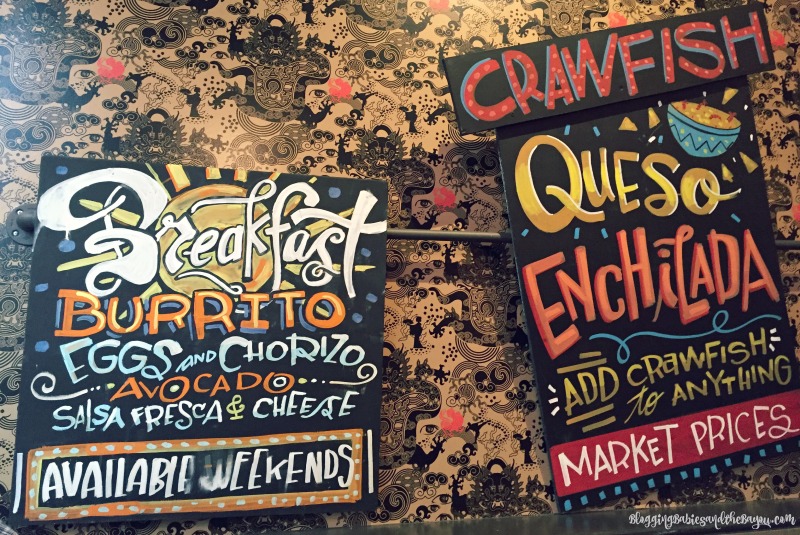 Breakfast
BURRITO
EGGS AND CHORIZO
AVOCADO
SALSA FRESCA & CHEESE
AVAILABLE WEEKENDS
CRAWFISH
QUESO
ENCHILADA
ADD CRAWFISH
to ANYTHING
MARKET PRICES
BloggingBabiesandtheBayou.com